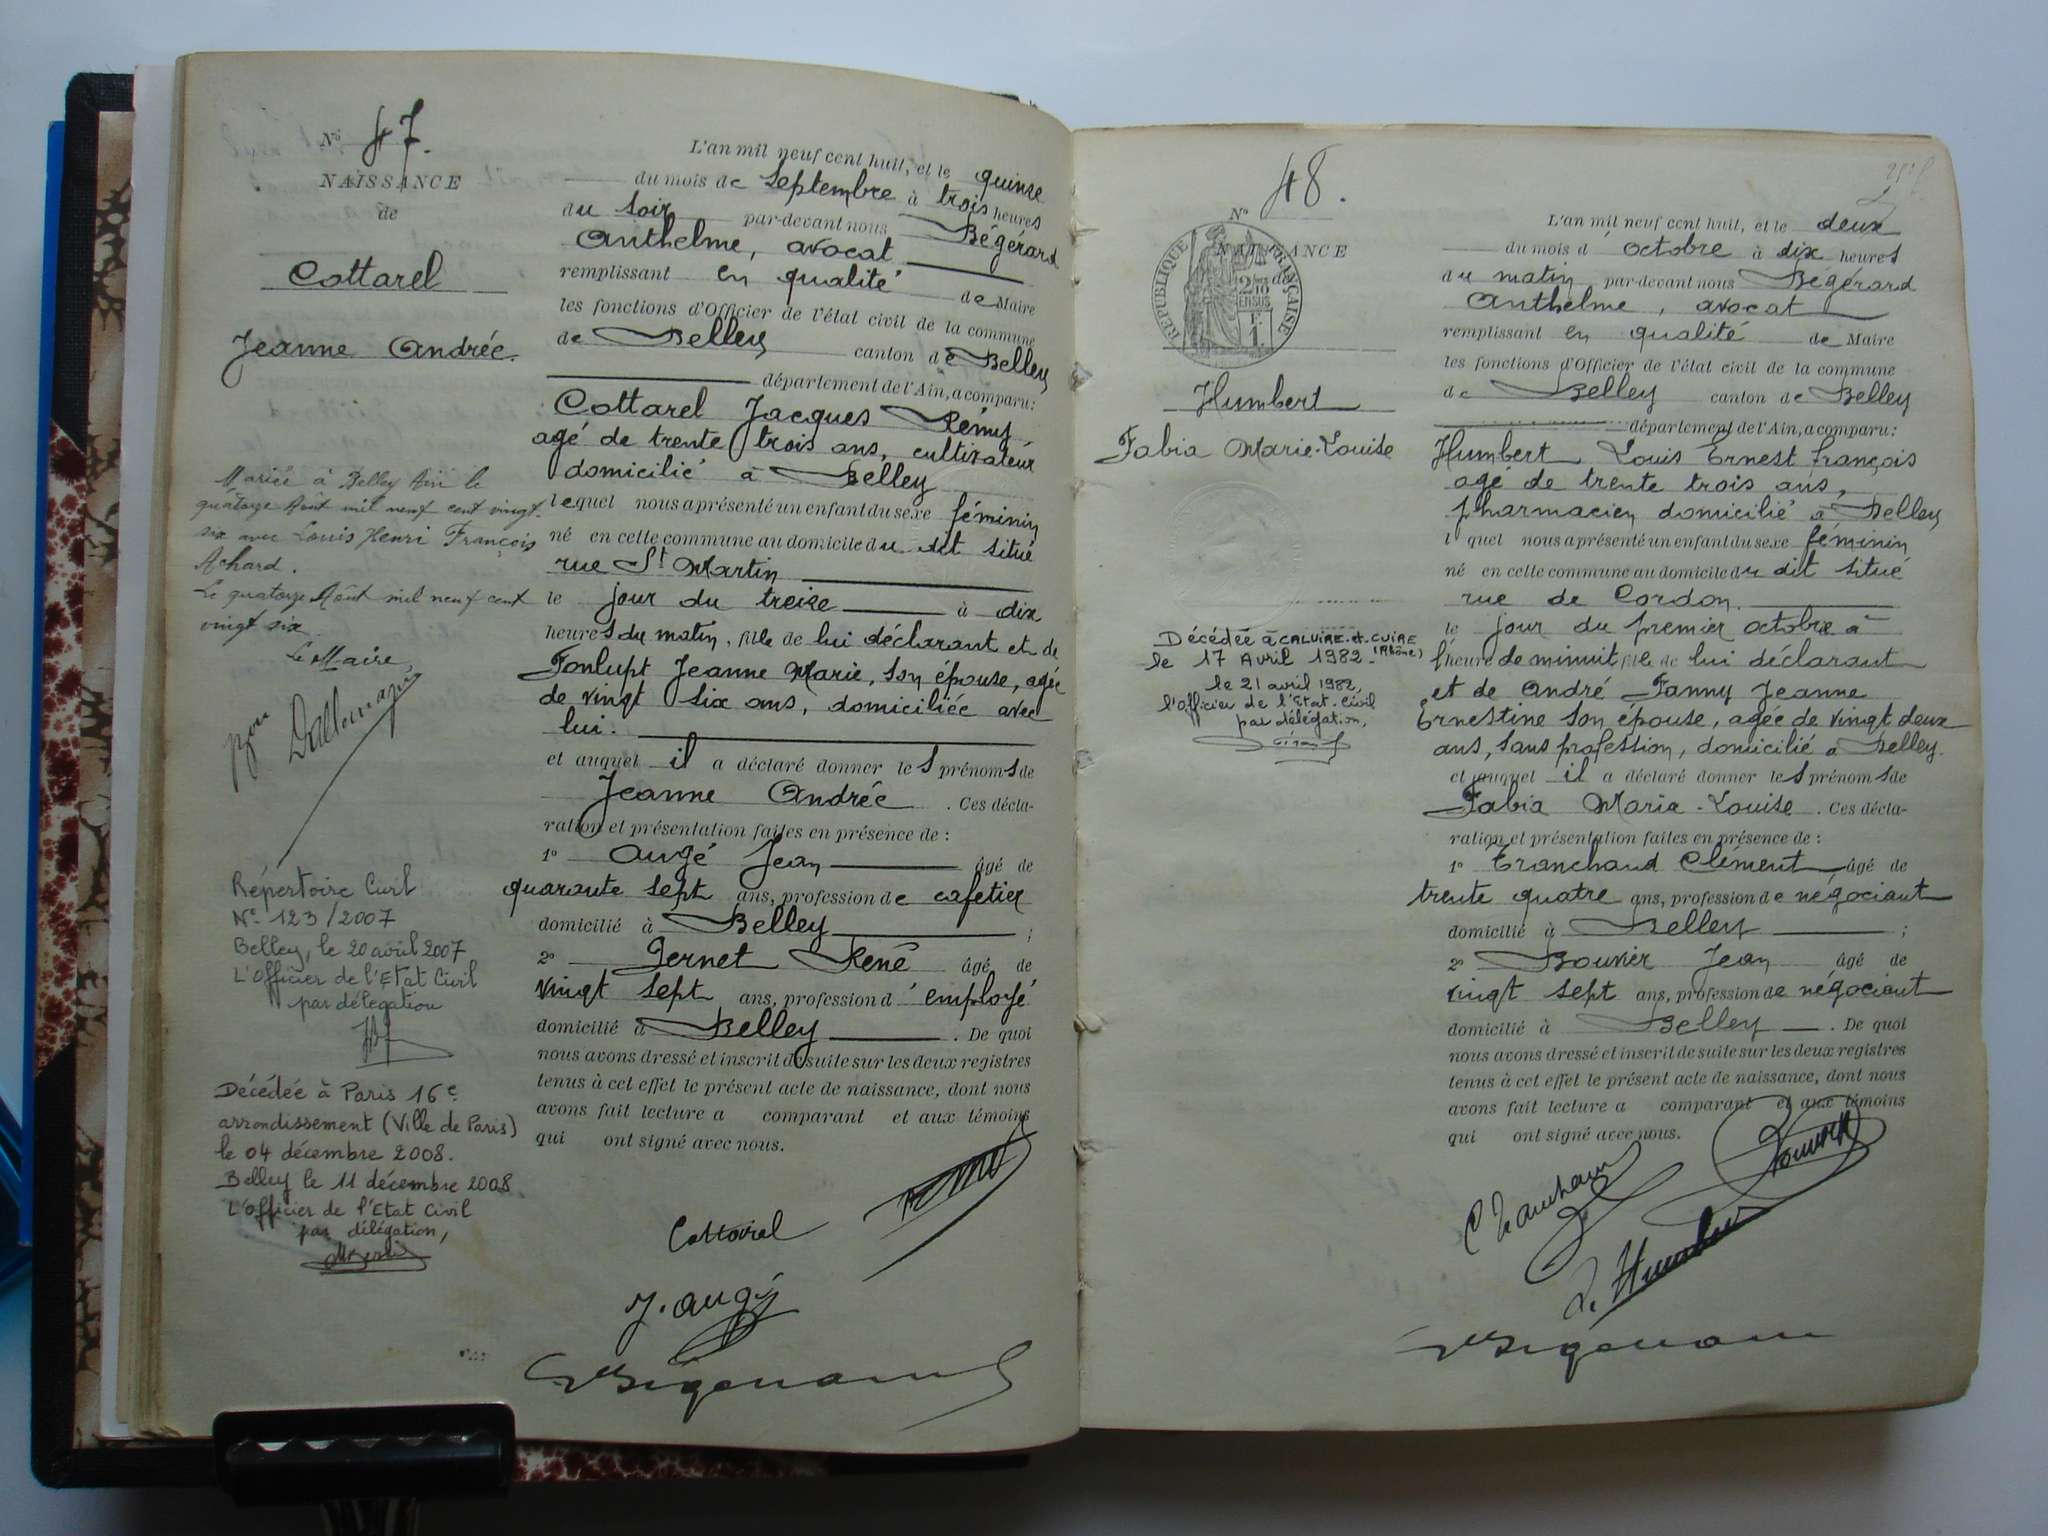 No 47.
NAISSANCE
de
Cottarel
Jeanne Andrée.
Mariée à Belley Ain le
quatorze Août mil neuf cent vingt
six avec Louis Henri François
Achard.
Le quatorze Août mil neuf cent
vingt six
Le Maire,
Répertoire Civil
No 123/2007
Belley, le 20 avril 2007
L'Officier de l'Etat Civil
par délégation
Décédée à Paris 16e
arrondissement (Ville de Paris)
le 04 décembre 2008.
Belley le 11 décembre 2008
L'Officier de l'Etat Civil
par délégation,
L'an mil neuf cent huit, et le quinze
du mois de septembre à trois heures
du soir par-devant nous Bégérard
Anthelme, avocat
remplissant en qualité de Maire
les fonctions d'Officier de l'état civil de la commune
de Belley canton de Belley
département de l'Ain, a comparu:
Cottarel Jacques Rémy
agé de trente trois ans, cultivateur
domicilié à Belley
lequel nous a présenté un enfant du sexe féminin
né en cette commune au domicile du dit situé
rue St Martin
le jour du treize à dix
heures du matin, fille de lui déclarant et de
Fonlupt Jeanne Marie, son épouse, agée
de vingt six ans, domiciliée avec
lui.
et auquel il a déclaré donner les prénoms de
Jeanne Andrée . Ces décla-
ration et présentation faites en présence de :
1o Augé Jean âgé de
quarante sept ans, profession de cafetier
domicilié à Belley ;
2o Pernet René âgé de
vingt sept ans, profession d'employé
domicilié à Belley . De quoi
nous avons dressé et inscrit de suite sur les deux registres
tenus à cet effet le présent acte de naissance, dont nous
avons fait lecture a comparant et aux témoins
qui ont signé avec nous.
Cottarel
J. Augé
No 48.
NAISSANCE
de
RÉPUBLIQUE FRANÇAISE
Humbert
Fabia Marie-Louise
Décédée à CALUIRE-et-CUIRE
(Rhône)
le 17 Avril 1982.
le 21 avril 1982,
l'officier de l'Etat-Civil
par délégation,
L'an mil neuf cent huit, et le deux
du mois d'octobre à dix heures
du matin par-devant nous Bégérard
Anthelme, avocat
remplissant en qualité de Maire
les fonctions d'Officier de l'état civil de la commune
de Belley canton de Belley
département de l'Ain, a comparu:
Humbert Louis Ernest François
agé de trente trois ans,
pharmacien domicilié à Belley
l quel nous a présenté un enfant du sexe féminin
né en cette commune au domicile du dit situé
rue de Cordon.
le jour du premier octobre à
l'heure de minuit fille de lui déclarant
et de André Fanny Jeanne
Ernestine son épouse, agée de vingt deux
ans, sans profession, domicilié à Belley.
et auquel il a déclaré donner les prénoms de
Fabia Maria-Louise . Ces décla-
ration et présentation faites en présence de :
1o Tranchand Clément âgé de
trente quatre ans, profession de négociant
domicilié à Belley ;
2o Bouvier Jean âgé de
vingt sept ans, profession de négociant
domicilié à Belley . De quoi
nous avons dressé et inscrit de suite sur les deux registres
tenus à cet effet le présent acte de naissance, dont nous
avons fait lecture a comparant et aux témoins
qui ont signé avec nous.
L. Humbert